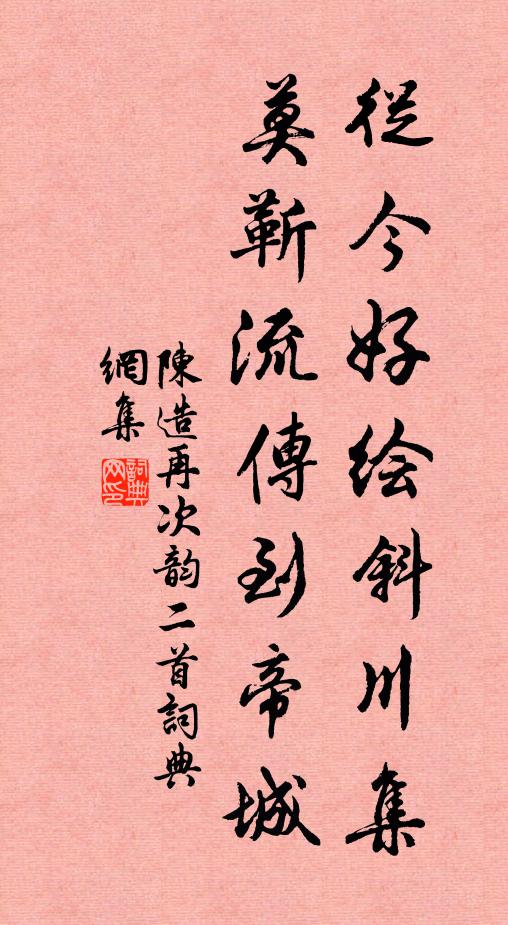 從今好绘斜川集
莫靳流傳到帝城
陳造再次韵二首詞典
網集
詞典网印